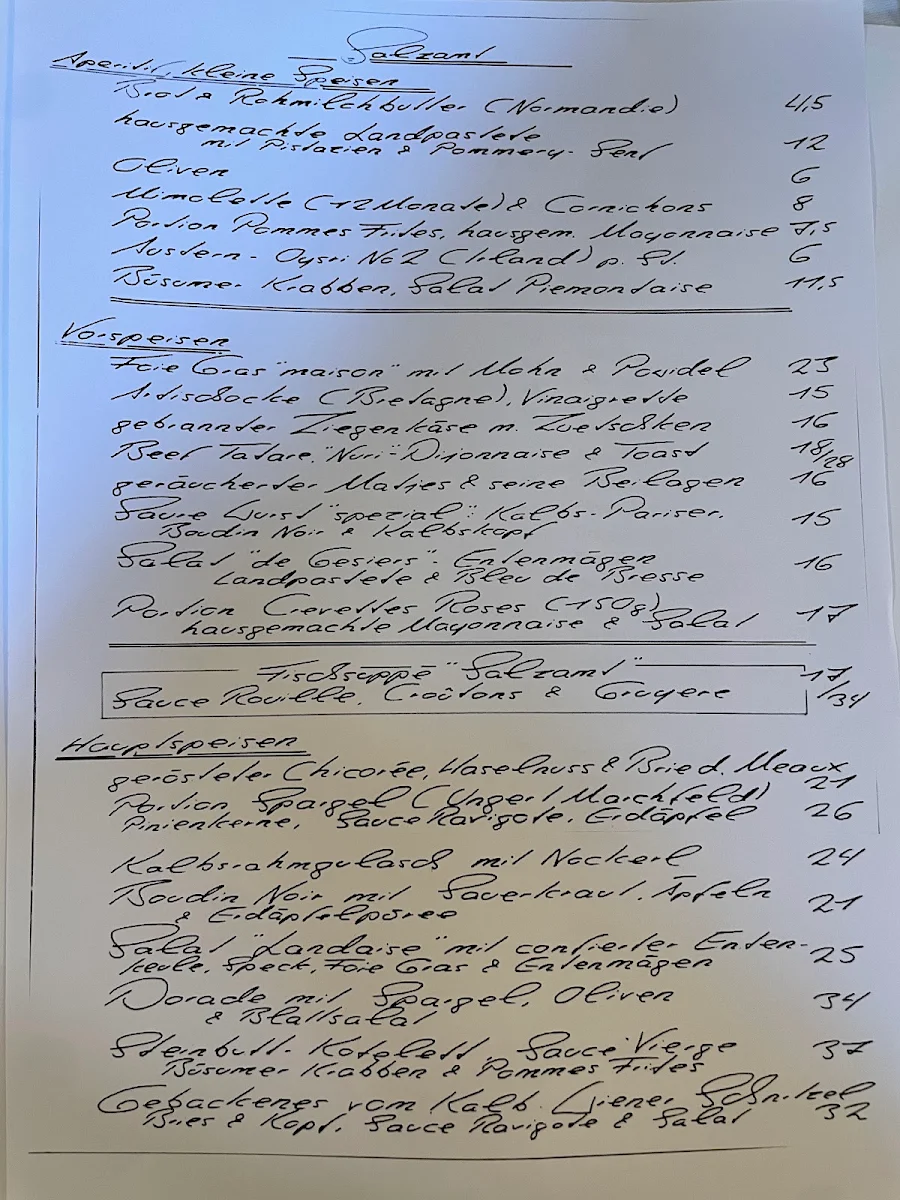 Salzamt
Aperitif, kleine Speisen
Brot & Rohmilchbutter (Normandie) 4,5
hausgemachte Landpastete
mit Pistazien & Pommery-Senf 12
Oliven 6
Mimolette (12 Monate) & Cornichons 8
Portion Pommes Frites, hausgem. Mayonnaise 7,5
Austern - Oysri No 2 (Irland) p. St. 6
Büsumer Krabben, Salat Piemontaise 11,5
Vorspeisen
Foie Gras "maison" mit Mohn & Powidel 23
Artischocke (Bretagne), Vinaigrette 15
gebrannter Ziegenkäse m. Zwetschken 16
Beef Tatare, "Nuri"-Dijonnaise & Toast 18/28
geräucherter Matjes & seine Beilagen 16
Saure Wurst "spezial": Kalbs-Pariser,
Boudin Noir & Kalbskopf 15
Salat "de Gesiers" - Entenmägen
Landpastete & Bleu de Bresse 16
Portion Crevettes Roses (150g)
hausgemachte Mayonnaise & Salat 17
Fischsuppe "Salzamt" 17/34
Sauce Rouille, Croûtons & Gruyere
Hauptspeisen
gerösteter Chicorée, Haselnuss & Brie d. Meaux 21
Portion Spargel (Unger / Marchfeld)
Pinienkerne, Sauce Ravigote, Erdäpfel 26
Kalbsrahmgulasch mit Nockerl 24
Boudin Noir mit Sauerkraut, Äpfeln
& Erdäpfelpüree 21
Salat "Landaise" mit confierter Enten-
keule, Speck, Foie Gras & Entenmägen 25
Dorade mit Spargel, Oliven
& Blattsalat 34
Steinbutt-Kotelett, Sauce Vierge
Büsumer Krabben & Pommes Frites 37
Gebackenes vom Kalb: Wiener Schnitzel
Bries & Kopf, Sauce Ravigote & Salat 32